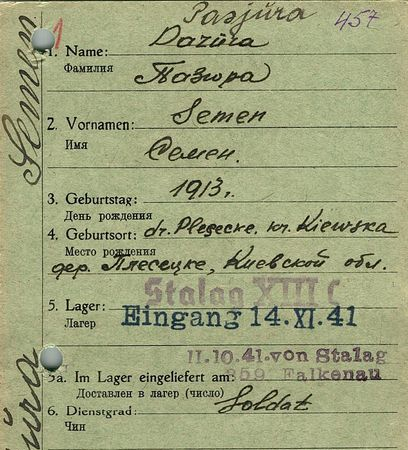 Pasjura
457
1. Name: Pazüra
Фамилия Пазюра
2. Vornamen: Semen
Имя Семен.
3. Geburtstag: 1913 г.
День рождения
4. Geburtsort: dr. Plesecke, kr. Kiewska
Место рождения
дер. Плесецке, Киевской обл.
Stalag XIII C
5. Lager: Eingang 14.XI.41
Лагер
11.10.41.von Stalag
5a. Im Lager eingeliefert am: 359 Falkenau
Доставлен в лагер (число)
6. Dienstgrad: Soldat
Чин
Semen